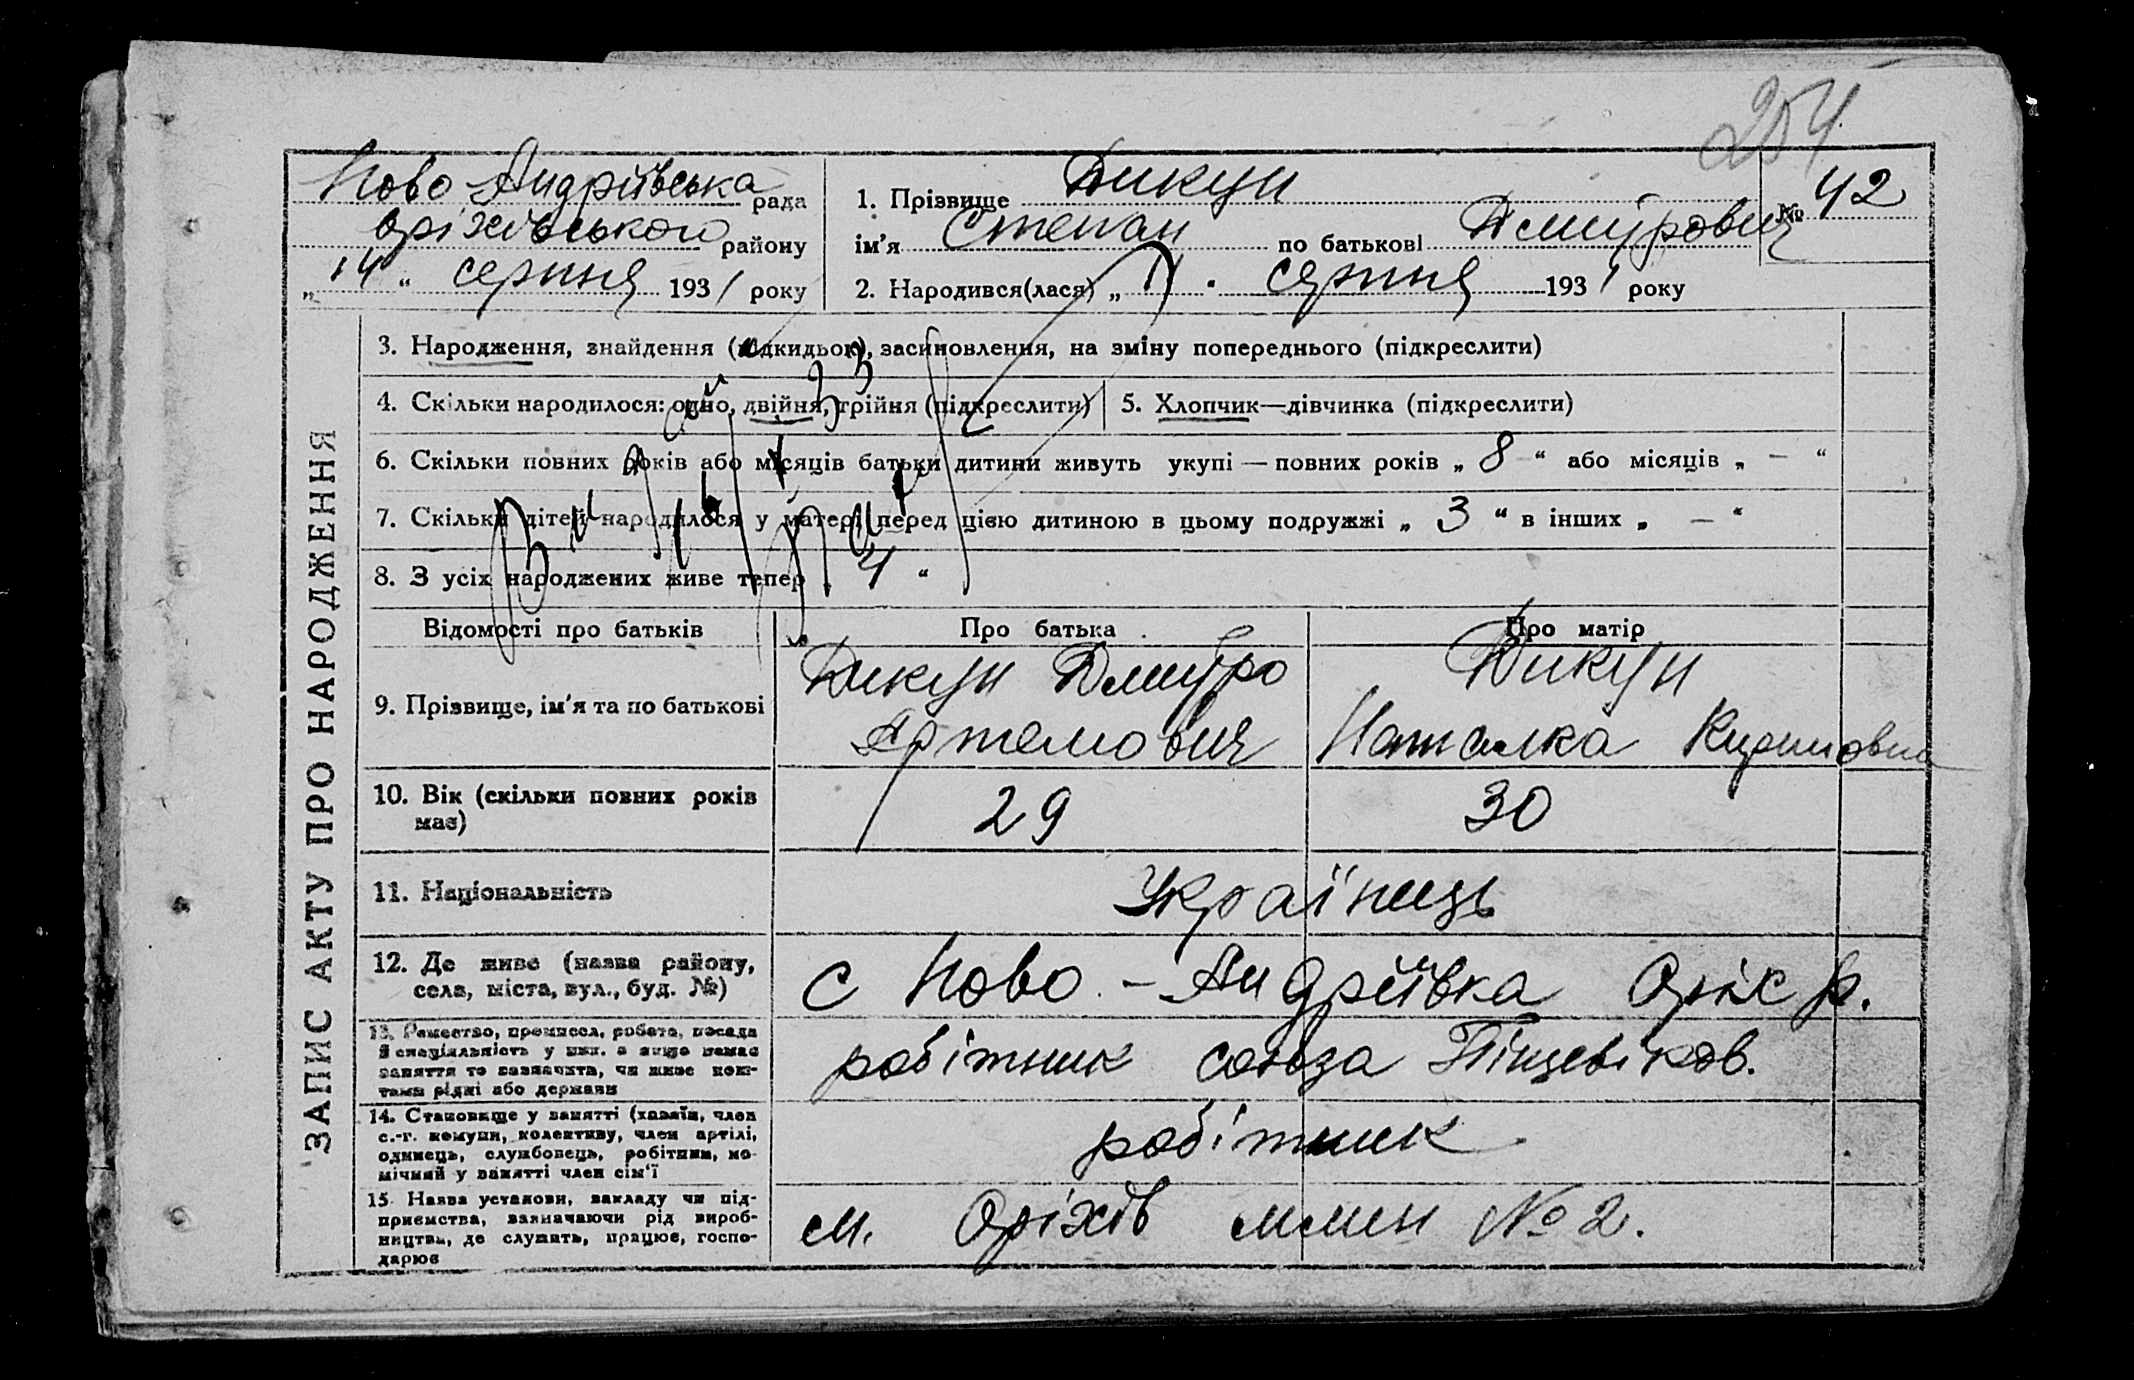 254
Ново-Андріївська рада
Оріхівського району
„14“ серпня 1931 року
1. Прізвище Дикун
№ 42
ім'я Степан по батькові Дмитрович
2. Народився(лася) „11“ серпня 1931 року
ЗАПИС АКТУ ПРО НАРОДЖЕННЯ
3. Народження, знайдення (підкидьок), засиновлення, на зміну попереднього (підкреслити)
4. Скільки народилося: одно, двійня, трійня (підкреслити)
5. Хлопчик—дівчинка (підкреслити)
6. Скільки повних років або місяців батьки дитини живуть укупі — повних років „ 8 “ або місяців „ – “
7. Скільки дітей народилося у матері перед цією дитиною в цьому подружжі „ 3 “ в інших „ – “
8. З усіх народжених живе тепер „ 4 “
Відомості про батьків
Про батька
Про матір
9. Прізвище, ім'я та по батькові
Дикун Дмитро
Артемович
Дикун
Наталка
10. Вік (скільки повних років
має)
29
30
11. Національність
Українець
12. Де живе (назва району,
села, міста, вул., буд. №)
с Ново-Андріївка Оріх р.
13. Ремество, промисел, робота, посада
й спеціяльність у них, а якщо немає
заняття то зазначити, чи живе кош-
тами рідні або держави
робітник союза Піщевіков.
14. Становище у занятті (хазяїн, член
с.-г. комуни, колективу, член артілі,
одинець, службовець, робітник, по-
мічний у занятті член сім'ї
робітник
15. Назва установи, закладу чи під-
приємства, зазначаючи рід вироб-
ництва, де служить, працює, госпо-
дарює
м. Оріхів млин № 2.